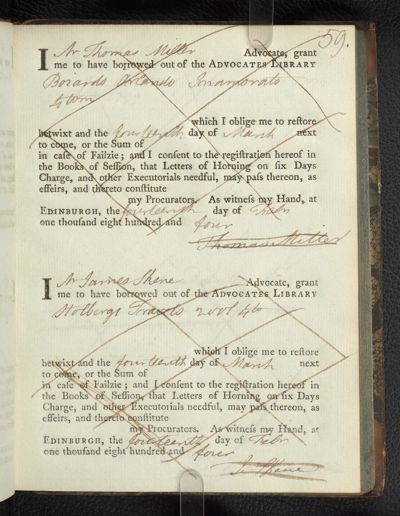 59.
I Mr Thomas Miller Advocate, grant
me to have borrowed out of the ADVOCATES LIBRARY
Boiardo Orlando Innamorato
4 tom
which I oblige me to reſtore
betwixt and the fourteenth day of March next
to come, or the Sum of
in caſe of Failzie; and I conſent to the regiſtration hereof in
the Books of Seſſion, that Letters of Horning on ſix Days
Charge, and other Executorials needful, may paſs thereon, as
effeirs, and thereto conſtitute
my Procurators. As witneſs my Hand, at
EDINBURGH, the fourteenth day of Febr
one thouſand eight hundred and four
Thomas Miller
I Mr James Skene Advocate, grant
me to have borrowed out of the ADVOCATES LIBRARY
Stolbergs Travels 2 vol 4to
which I oblige me to reſtore
betwixt and the fourteenth day of March next
to come, or the Sum of
in caſe of Failzie; and I conſent to the regiſtration hereof in
the Books of Seſſion, that Letters of Horning on ſix Days
Charge, and other Executorials needful, may paſs thereon, as
effeirs, and thereto conſtitute
my Procurators. As witneſs my Hand, at
EDINBURGH, the fourteenth day of Febr
one thouſand eight hundred and four
Skene